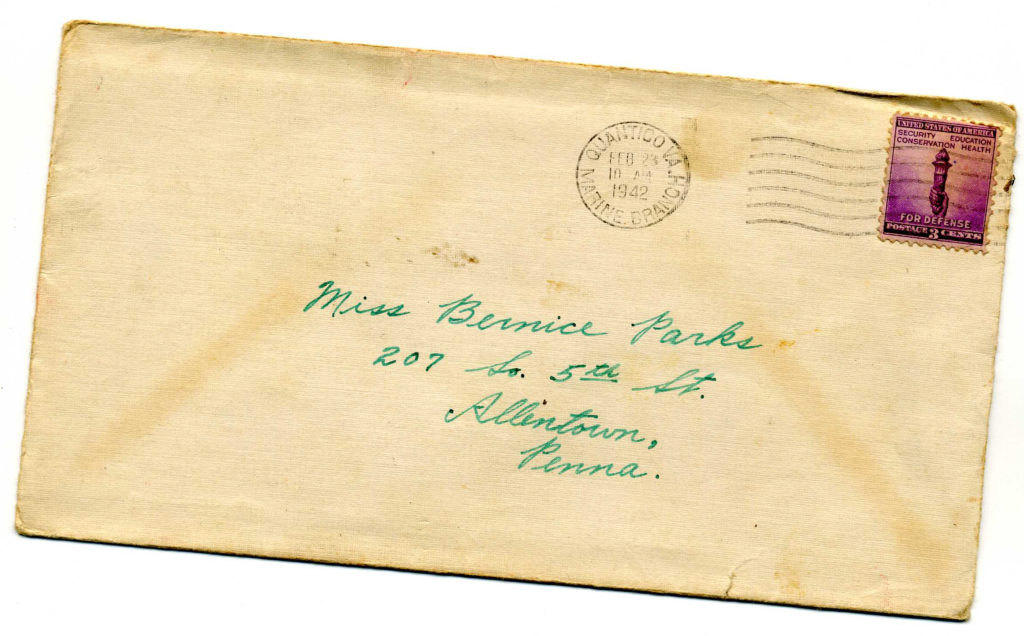 QUANTICO VA. HQ.
MARINE BRANCH
FEB 23
10 AM
1942
UNITED STATES OF AMERICA
SECURITY EDUCATION
CONSERVATION HEALTH
FOR DEFENSE
POSTAGE 3 CENTS
Miss Bernice Parks
207 So. 5th St.
Allentown,
Penna.